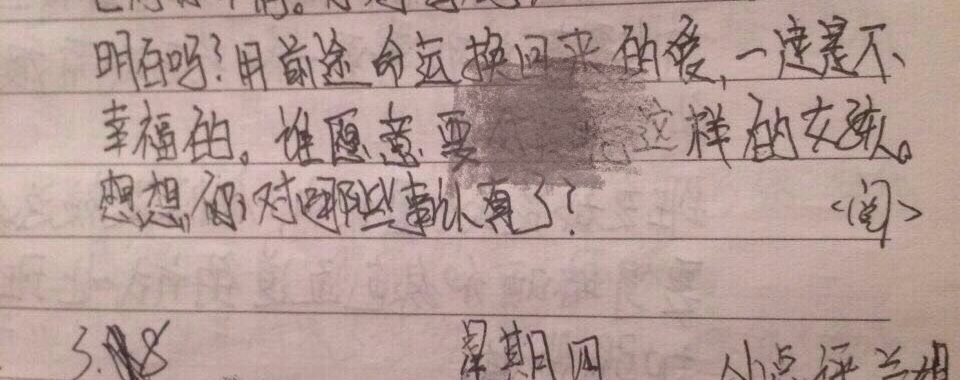 明白吗？用前途命运换回来的爱，一定是不
幸福的。谁愿意要这样的女孩。
想想，你对哪些事认真了？ <阅>
3.18 星期四 小点评